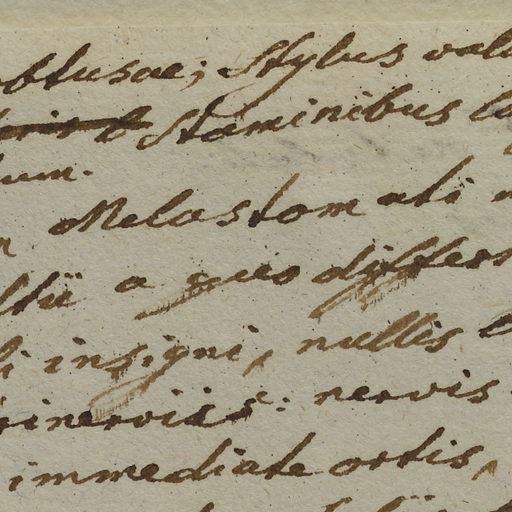 obtusae; Stylus val
Staminibus l
um.
Melastomati
a quo differ
insigni, nullis
rinerviis: nervis
immediate ortis,